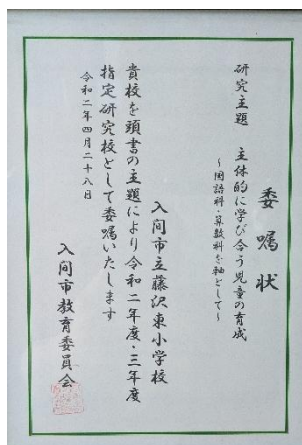 委嘱状
研究主題　主体的に学び合う児童の育成
～国語科・算数科を軸として～
入間市立藤沢東小学校
貴校を頭書の主題により令和二年度・三年度
指定研究校として委嘱いたします
令和二年四月二十八日
入間市教育委員会